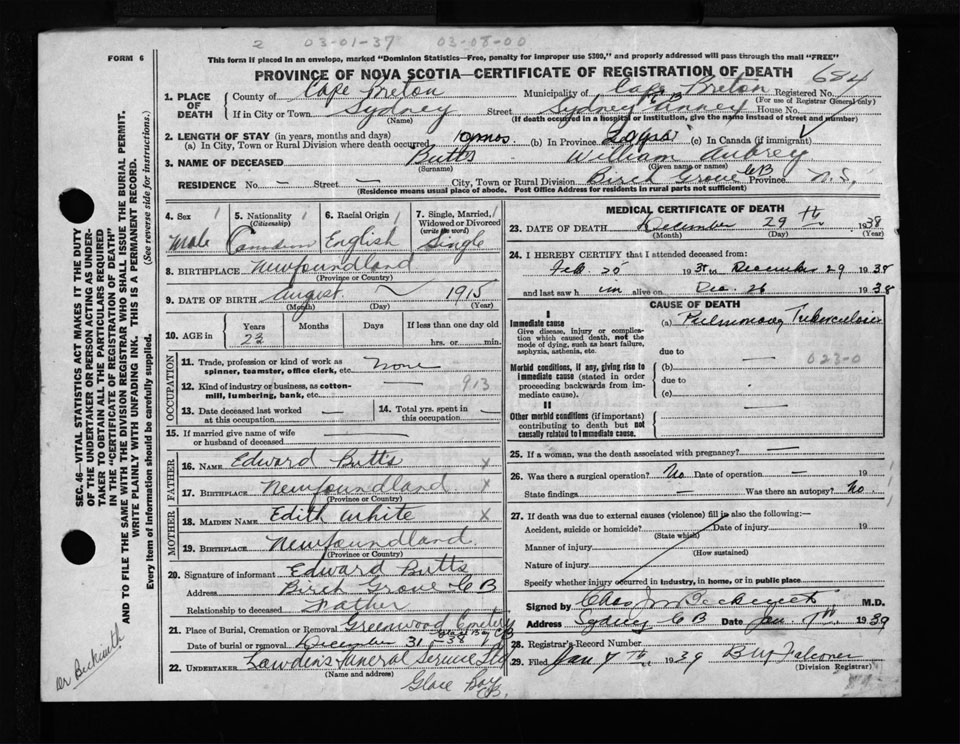 2 03-01-37 03-08-00
FORM 6
This form if placed in an envelope, marked "Dominion Statistics—Free, penalty for improper use $300," and properly addressed will pass through the mail "FREE"
PROVINCE OF NOVA SCOTIA—CERTIFICATE OF REGISTRATION OF DEATH 684
1. PLACE OF DEATH
County of Cape Breton Municipality of Cape Breton Registered No.
(For use of Registrar General only)
If in City or Town Sydney Street Sydney House No.
(Name) (If death occurred in a hospital or institution, give the name instead of street and number)
2. LENGTH OF STAY (in years, months and days)
(a) In City, Town or Rural Division where death occurred mos. (b) In Province (c) In Canada (if immigrant)
3. NAME OF DECEASED Butts William Aubrey
(Surname) (Given name or names)
RESIDENCE No. — Street — City, Town or Rural Division Birch Grove CB Province N.S.
(Residence means usual place of abode. Post Office Address for residents in rural parts not sufficient)
4. Sex Male
5. Nationality (Citizenship)
6. Racial Origin English
7. Single, Married, Widowed or Divorced (write the word) Single
8. BIRTHPLACE Newfoundland
(Province or Country)
9. DATE OF BIRTH August — 1915
(Month) (Day) (Year)
10. AGE in Years 23 Months Days If less than one day old hrs. or min.
OCCUPATION
11. Trade, profession or kind of work as spinner, teamster, office clerk, etc. None
12. Kind of industry or business, as cotton-mill, lumbering, bank, etc. — 913
13. Date deceased last worked at this occupation —
14. Total yrs. spent in this occupation —
15. If married give name of wife or husband of deceased —
FATHER
16. NAME Edward Butts x
17. BIRTHPLACE Newfoundland x
(Province or Country)
MOTHER
18. MAIDEN NAME Edith White x
19. BIRTHPLACE Newfoundland
(Province or Country)
20. Signature of informant Edward Butts
Address Birch Grove CB
Relationship to deceased Father
21. Place of Burial, Cremation or Removal Greenwood Cemetery
Glace Bay CB
Date of burial or removal December 31 - 38
22. UNDERTAKER Funeral Service
(Name and address)
Glace Bay CB.
MEDICAL CERTIFICATE OF DEATH
23. DATE OF DEATH December 29th 1938
(Month) (Day) (Year)
24. I HEREBY CERTIFY that I attended deceased from:
Feb. 25 193 to December 29 1938
and last saw him alive on Dec. 26 1938
CAUSE OF DEATH
I
Immediate cause
Give disease, injury or complication which caused death, not the mode of dying, such as heart failure, asphyxia, asthenia, etc.
(a) Pulmonary Tuberculosis
due to —
023-0
Morbid conditions, if any, giving rise to immediate cause (stated in order proceeding backwards from immediate cause).
(b)
due to
(c)
II
Other morbid conditions (if important) contributing to death but not causally related to immediate cause.
25. If a woman, was the death associated with pregnancy? —
26. Was there a surgical operation? No Date of operation — 19
State findings — Was there an autopsy? No.
27. If death was due to external causes (violence) fill in also the following:—
Accident, suicide or homicide? Date of injury 19
(State which)
Manner of injury
(How sustained)
Nature of injury
Specify whether injury occurred in industry, in home, or in public place
Signed by M.D.
Address Sydney CB Date Jan. 1939
28. Registrar's Record Number
29. Filed Jan 1939 Falconer
(Division Registrar)
SEC. 46—VITAL STATISTICS ACT MAKES IT THE DUTY OF THE UNDERTAKER OR PERSON ACTING AS UNDERTAKER TO OBTAIN ALL THE PARTICULARS REQUIRED IN THE "CERTIFICATE OF REGISTRATION OF DEATH"
AND TO FILE THE SAME WITH THE DIVISION REGISTRAR WHO SHALL ISSUE THE BURIAL PERMIT.
WRITE PLAINLY WITH UNFADING INK. THIS IS A PERMANENT RECORD.
Every item of information should be carefully supplied. (See reverse side for instructions.)
Dr Beckwith